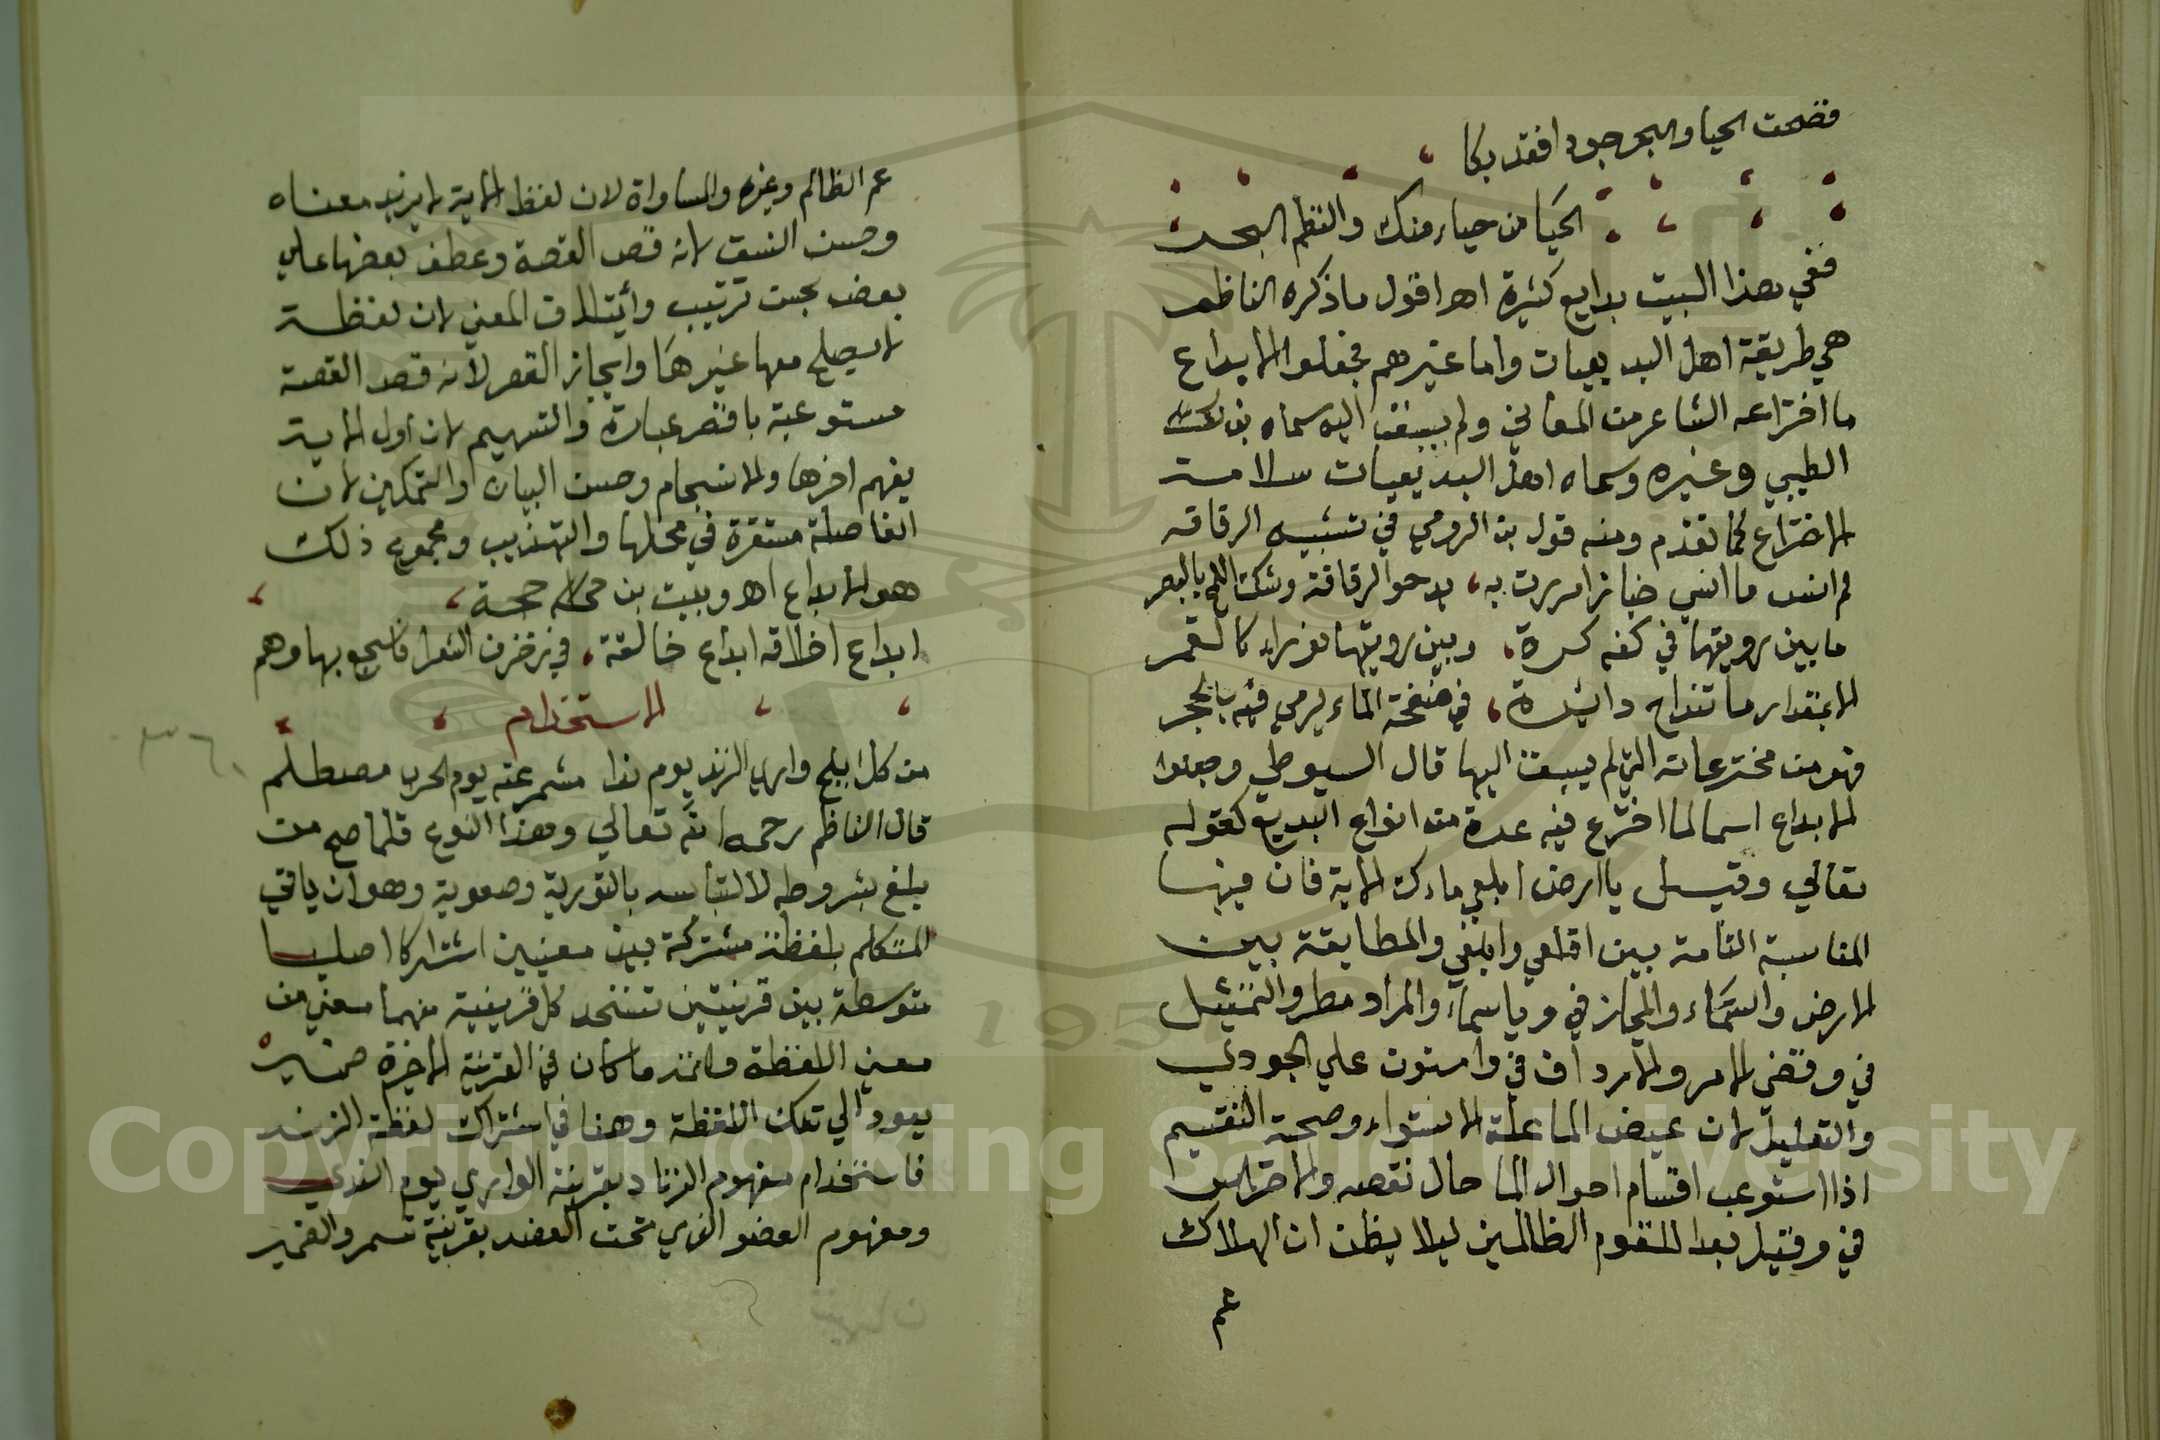 فضحت الحيا والبحر جودا فقد بكا
الحَيا من حياء منك والتطم البحر
ففي هذا البيت بدايع كثيرة اهـ اقول ما ذكره الناظم
هي طريقة اهل البديعيات واما غيرهم فجعلوا الابداع
ما اخترعه الشاعر من المعاني ولم يسبق اليه سماه بذلك
الطيبي وغيره وسماه اهل البديعيات سلامة
الاختراع كما تقدم ومنه قول بن الرومي في تشبيه الرقاقة
لم انس ما انسي خبازا مررت به يدحو الرقاقة وشك اللمح بالبصر
ما بين رويتها في كفه كرة وبين رويتها قوراء كالقمر
الا بمقدار ما تنداح دائرة في صفحة الماء يرمي فيه بالحجر
فهو من مخترعاته التي لم يسبق اليها قال السيوطي وجعلوا
الابداع اسما لما اخترع فيه عدة من انواع البديع كقوله
تعالي وقيل يا ارض ابلعي ماءك الاية فان فيها
المناسبة التامة بين اقلعي وابلعي والمطابقة بين
الارض والسَّماء والمجاز في ويا سماء والمراد مطر والتمثيل
في وقضي الامر والارداف في واستوت علي الجودي
والتعليل لان غيض الما علة الاستواء وصحة التقسيم
اذا استوعب اقسام احوال الما حال نقصه والاحتراس
في وقيل بعدا للقوم الظالمين ليلا يظن ان الهلاك
عم
عم الظالم وغيره والمساواة لان لفظ الاية لا يزيد معناه
وحسن النسق لانه قص القصة وعطف بعضها علي
بعض بحسن ترتيب وائتلاف المعني لان لفظة
لا يصلح معها غيرهَا وايجاز القصر لانه قصد القصة
مستوعبة باقصر عبارة والتسهيم لان اول الاية
يفهم اخرها والانسجام وحسن البيان والتمكين لان
الفاصلة مستقرة في محلها والتهذيب ومجموع ذلك
هو الابداع اهـ وبيت بن حجة
ابداع اخلاقه ابداع خالقه في زخرف الشعرا فاسجع بها وهم
الاستخدام
من كل ابلج واري الزند يوم ندا مشمر عنه يوم الحرب مصطلم
قال الناظم رحمه الله تعالي وهذا النوع قلما صح من
بلغ بشروطه لالتباسه بالتورية وصعوبة وهو ان ياتي
المتكلم بلفظة مشتركة بين معنيين اشتراكا اصليا
متوسطة بين قرينتين تستخدم كل قرينة منهما معني من
معني اللفظة ما كان في القرينة الاخيرة ضمير
يعود الي تلك اللفظة وهنا في اشتراك لفظة الزند
فاستخدام مفهوم الزناد بقرينة الواري يوم الندي
ومفهوم العضو الذي تحت العضد بقرينة شمر والضمير
Copyright © King Saud University
1957